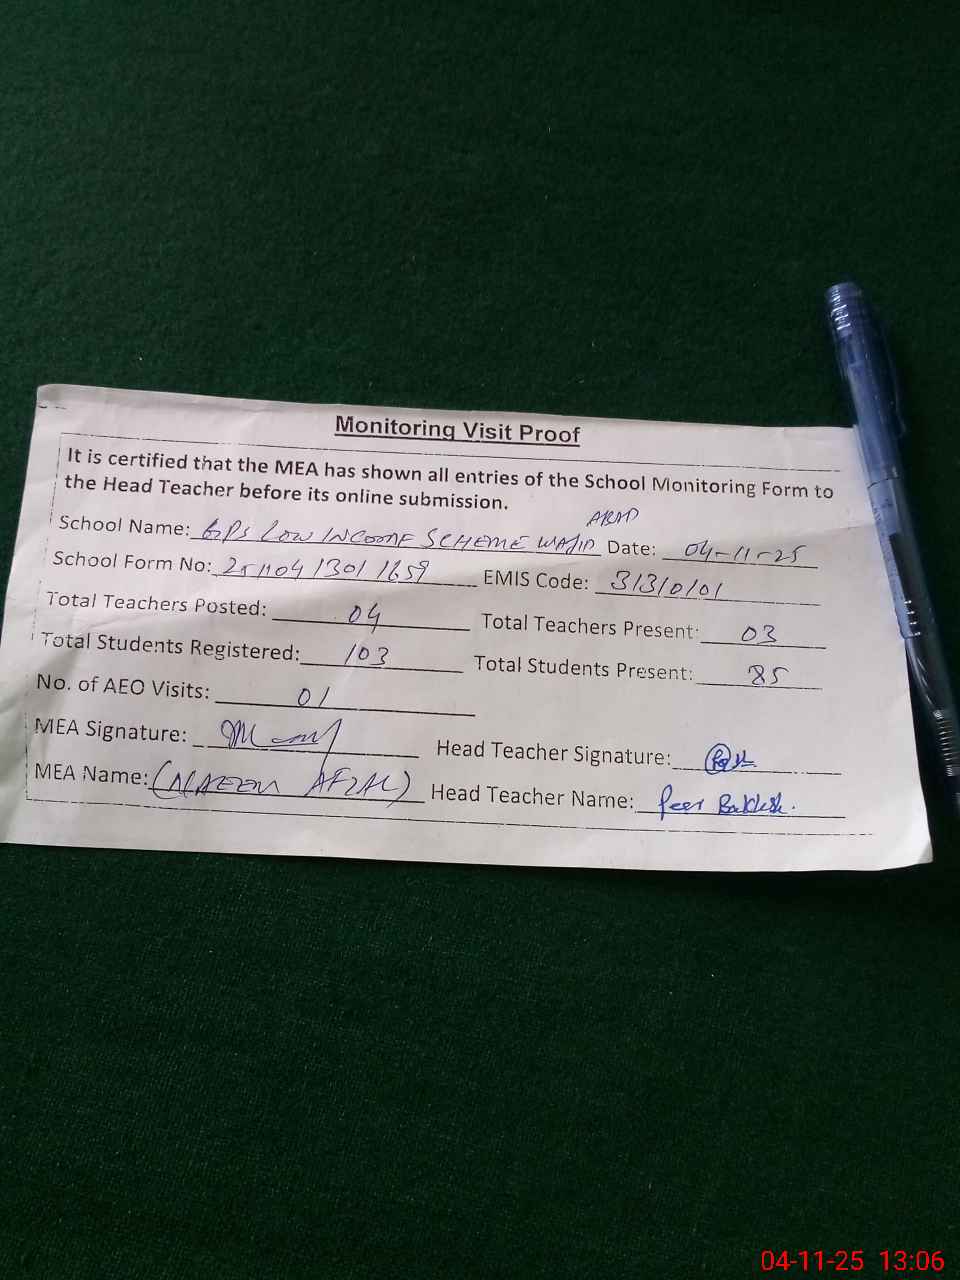 Monitoring Visit Proof
It is certified that the MEA has shown all entries of the School Monitoring Form to
the Head Teacher before its online submission.
ABAD
School Name: GPS LOW INCOME SCHEME WAJID Date: 04-11-25
School Form No: EMIS Code: 31310101
Total Teachers Posted: 04 Total Teachers Present: 03
Total Students Registered: 103 Total Students Present: 85
No. of AEO Visits: 01
MEA Signature: Head Teacher Signature:
MEA Name: (NAEEM AFZAL) Head Teacher Name: Peer Bakhsh.
04-11-25 13:06